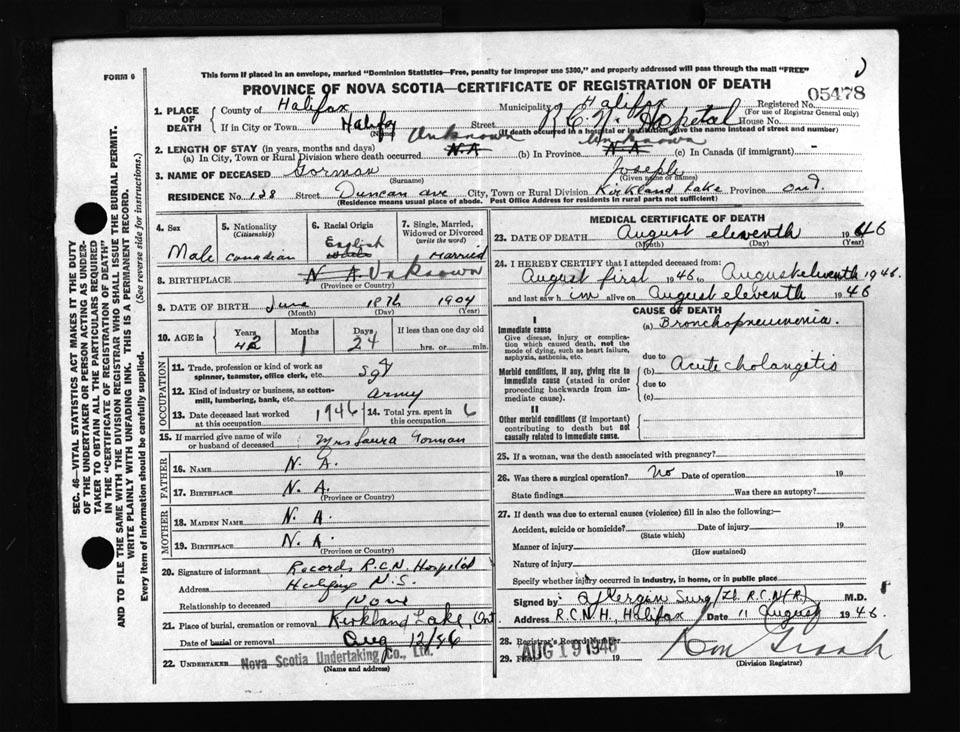 FORM 6
SEC. 46—VITAL STATISTICS ACT MAKES IT THE DUTY
OF THE UNDERTAKER OR PERSON ACTING AS UNDER-
TAKER TO OBTAIN ALL THE PARTICULARS REQUIRED
IN THE "CERTIFICATE OF REGISTRATION OF DEATH"
AND TO FILE THE SAME WITH THE DIVISION REGISTRAR WHO SHALL ISSUE THE BURIAL PERMIT.
WRITE PLAINLY WITH UNFADING INK. THIS IS A PERMANENT RECORD.
Every item of information should be carefully supplied. (See reverse side for instructions.)
This form if placed in an envelope, marked "Dominion Statistics—Free, penalty for improper use $300," and properly addressed will pass through the mail "FREE"
PROVINCE OF NOVA SCOTIA—CERTIFICATE OF REGISTRATION OF DEATH
05478
1. PLACE OF DEATH County of Halifax Municipality of Halifax Registered No.
(For use of Registrar General only)
If in City or Town Halifax Street R.C.N. Hospital House No.
(Name) (If death occurred in a hospital or institution, give the name instead of street and number)
2. LENGTH OF STAY (in years, months and days)
(a) In City, Town or Rural Division where death occurred N.A Unknown (b) In Province N.A Unknown (c) In Canada (if immigrant)
3. NAME OF DECEASED Gorman Joseph
(Surname) (Given name or names)
RESIDENCE No. 128 Street Duncan ave City, Town or Rural Division Kirkland Lake Province Ont.
(Residence means usual place of abode. Post Office Address for residents in rural parts not sufficient)
4. Sex Male
5. Nationality (Citizenship) Canadian
6. Racial Origin English
7. Single, Married, Widowed or Divorced (write the word) Married
8. BIRTHPLACE N A Unknown
(Province or Country)
9. DATE OF BIRTH June 18th 1904
(Month) (Day) (Year)
10. AGE in Years 42 Months 1 Days 24 If less than one day old hrs. or min.
OCCUPATION
11. Trade, profession or kind of work as spinner, teamster, office clerk, etc. Sgt
12. Kind of industry or business, as cotton-mill, lumbering, bank, etc. Army
13. Date deceased last worked at this occupation 1946
14. Total yrs. spent in 6
15. If married give name of wife or husband of deceased Mrs Laura Gorman
FATHER
16. NAME N. A.
17. BIRTHPLACE N. A.
(Province or Country)
MOTHER
18. MAIDEN NAME N. A.
19. BIRTHPLACE N. A.
(Province or Country)
20. Signature of informant Records R.C.N. Hospital
Address Halifax N.S.
Relationship to deceased None
21. Place of burial, cremation or removal Kirkland Lake, Ont
Date of burial or removal Aug 12/46
22. UNDERTAKER Nova Scotia Undertaking Co., Ltd.
(Name and address)
MEDICAL CERTIFICATE OF DEATH
23. DATE OF DEATH August eleventh 1946
(Month) (Day) (Year)
24. I HEREBY CERTIFY that I attended deceased from:
August first 1946 to August eleventh 1946.
and last saw him alive on August eleventh 1946
CAUSE OF DEATH
I
Immediate cause (a) Bronchopneumonia.
Give disease, injury or complication which caused death, not the mode of dying, such as heart failure, asphyxia, asthenia, etc.
due to
Morbid conditions, if any, giving rise to immediate cause (stated in order proceeding backwards from immediate cause).
(b) Acute cholangetis
due to
(c)
II
Other morbid conditions (if important) contributing to death but not causally related to immediate cause.
25. If a woman, was the death associated with pregnancy?
26. Was there a surgical operation? No Date of operation 19
State findings Was there an autopsy?
27. If death was due to external causes (violence) fill in also the following:—
Accident, suicide or homicide? Date of injury 19
(State which)
Manner of injury
(How sustained)
Nature of injury
Specify whether injury occurred in industry, in home, or in public place
Signed by Surg/Lt. R.C.N.(R.) M.D.
Address R.C.N.H., Halifax Date 11 August 1946
28. Registrar's Record Number
29. Filed AUG 19 1946 19
(Division Registrar)